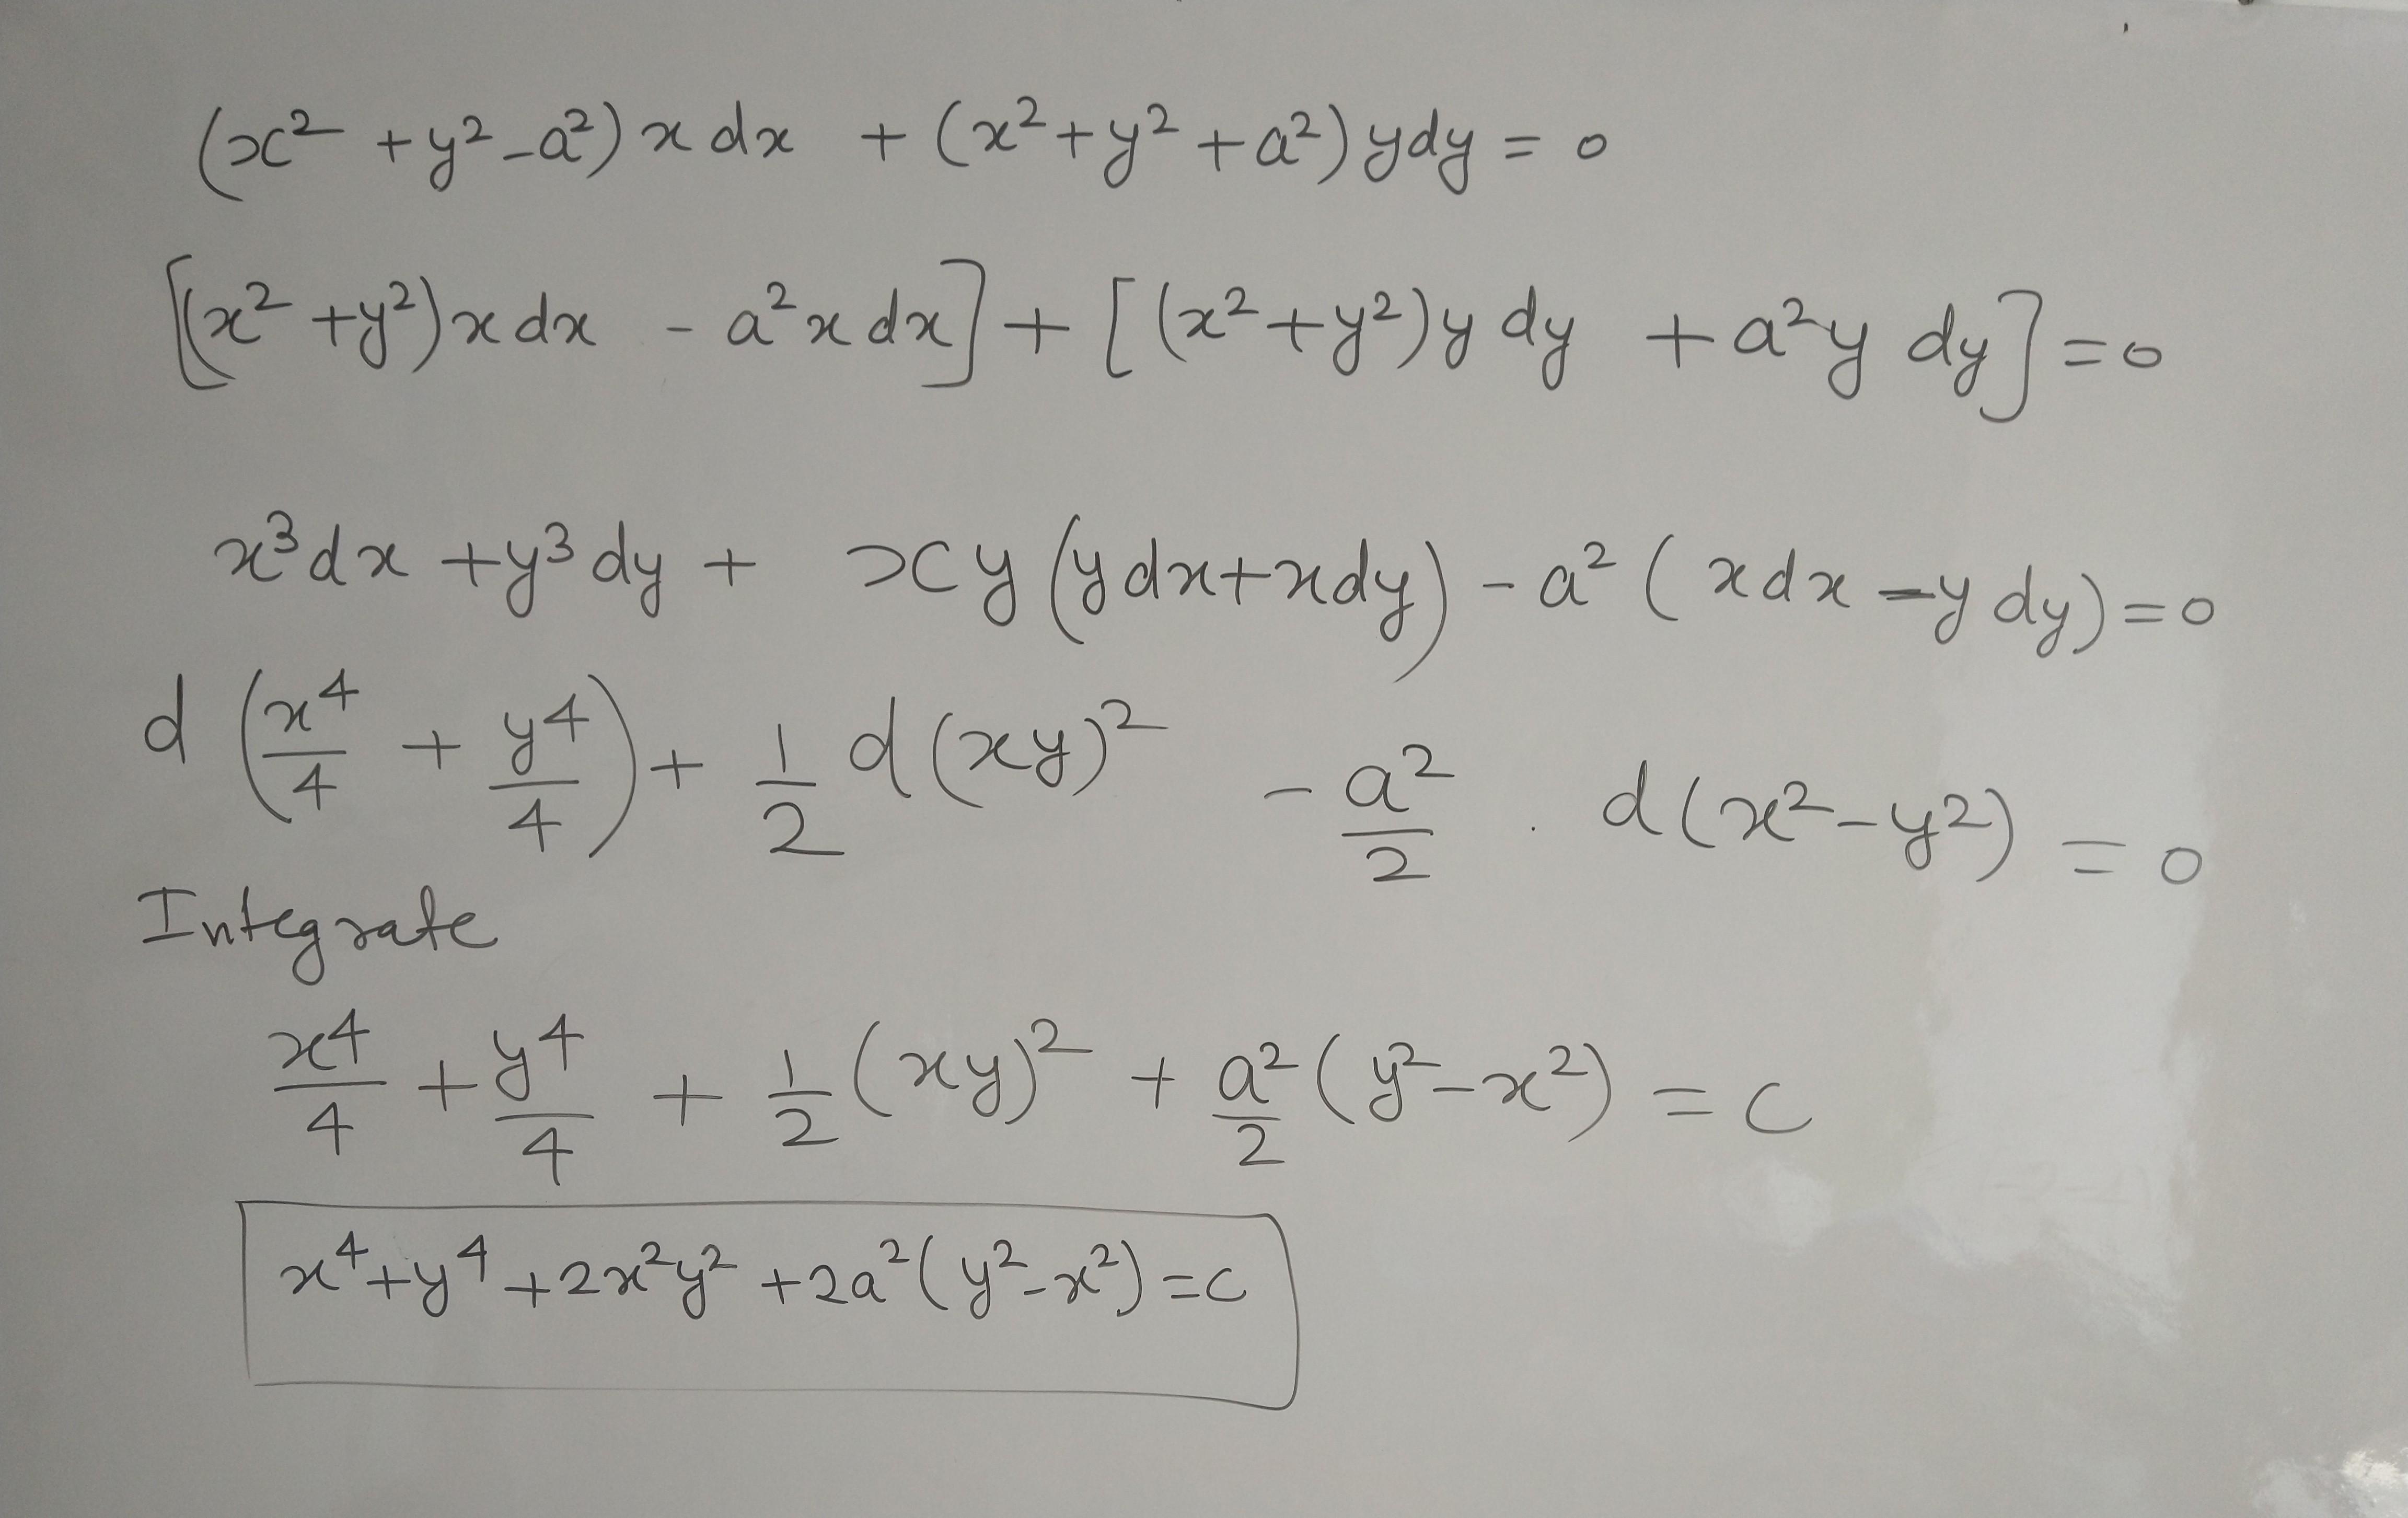 (x² + y² - a²) x dx + (x² + y² + a²) y dy = 0
[(x² + y²) x dx - a² x dx] + [(x² + y²) y dy + a² y dy] = 0
x³ dx + y³ dy + xy (y dx + x dy) - a² (x dx - y dy) = 0
d (x⁴/4 + y⁴/4) + 1/2 d(xy)² - a²/2 . d(x² - y²) = 0
Integrate
x⁴/4 + y⁴/4 + 1/2 (xy)² + a²/2 (y² - x²) = c
x⁴ + y⁴ + 2x²y² + 2a² (y² - x²) = c